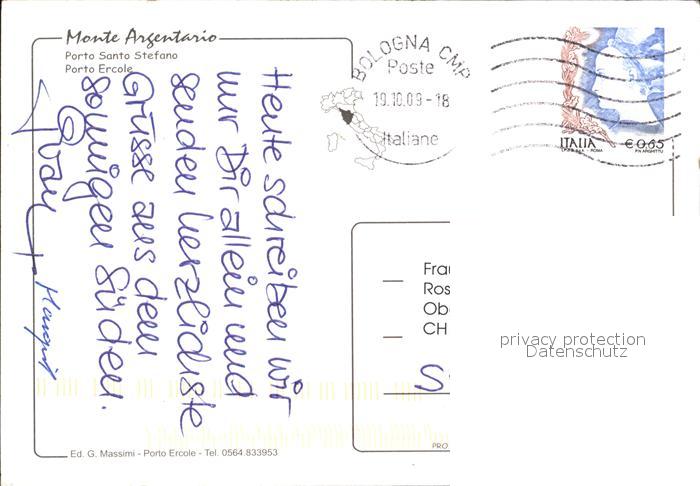 Monte Argentario
Porto Santo Stefano
Porto Ercole
BOLOGNA CMP
Poste
19.10.09-18
Italiane
ITALIA
€ 0,65
I.P.Z.S. S.p.A. - ROMA
P.N. ARGHITTU
Heute schreiben wir
nur Dir allein und
senden herzlichste
Grüsse aus dem
sonnigen Süden.
Margrit
Frau
Ros
Ob
CH
S
privacy protection
Datenschutz
PRO
Ed. G. Massimi - Porto Ercole - Tel. 0564.833953